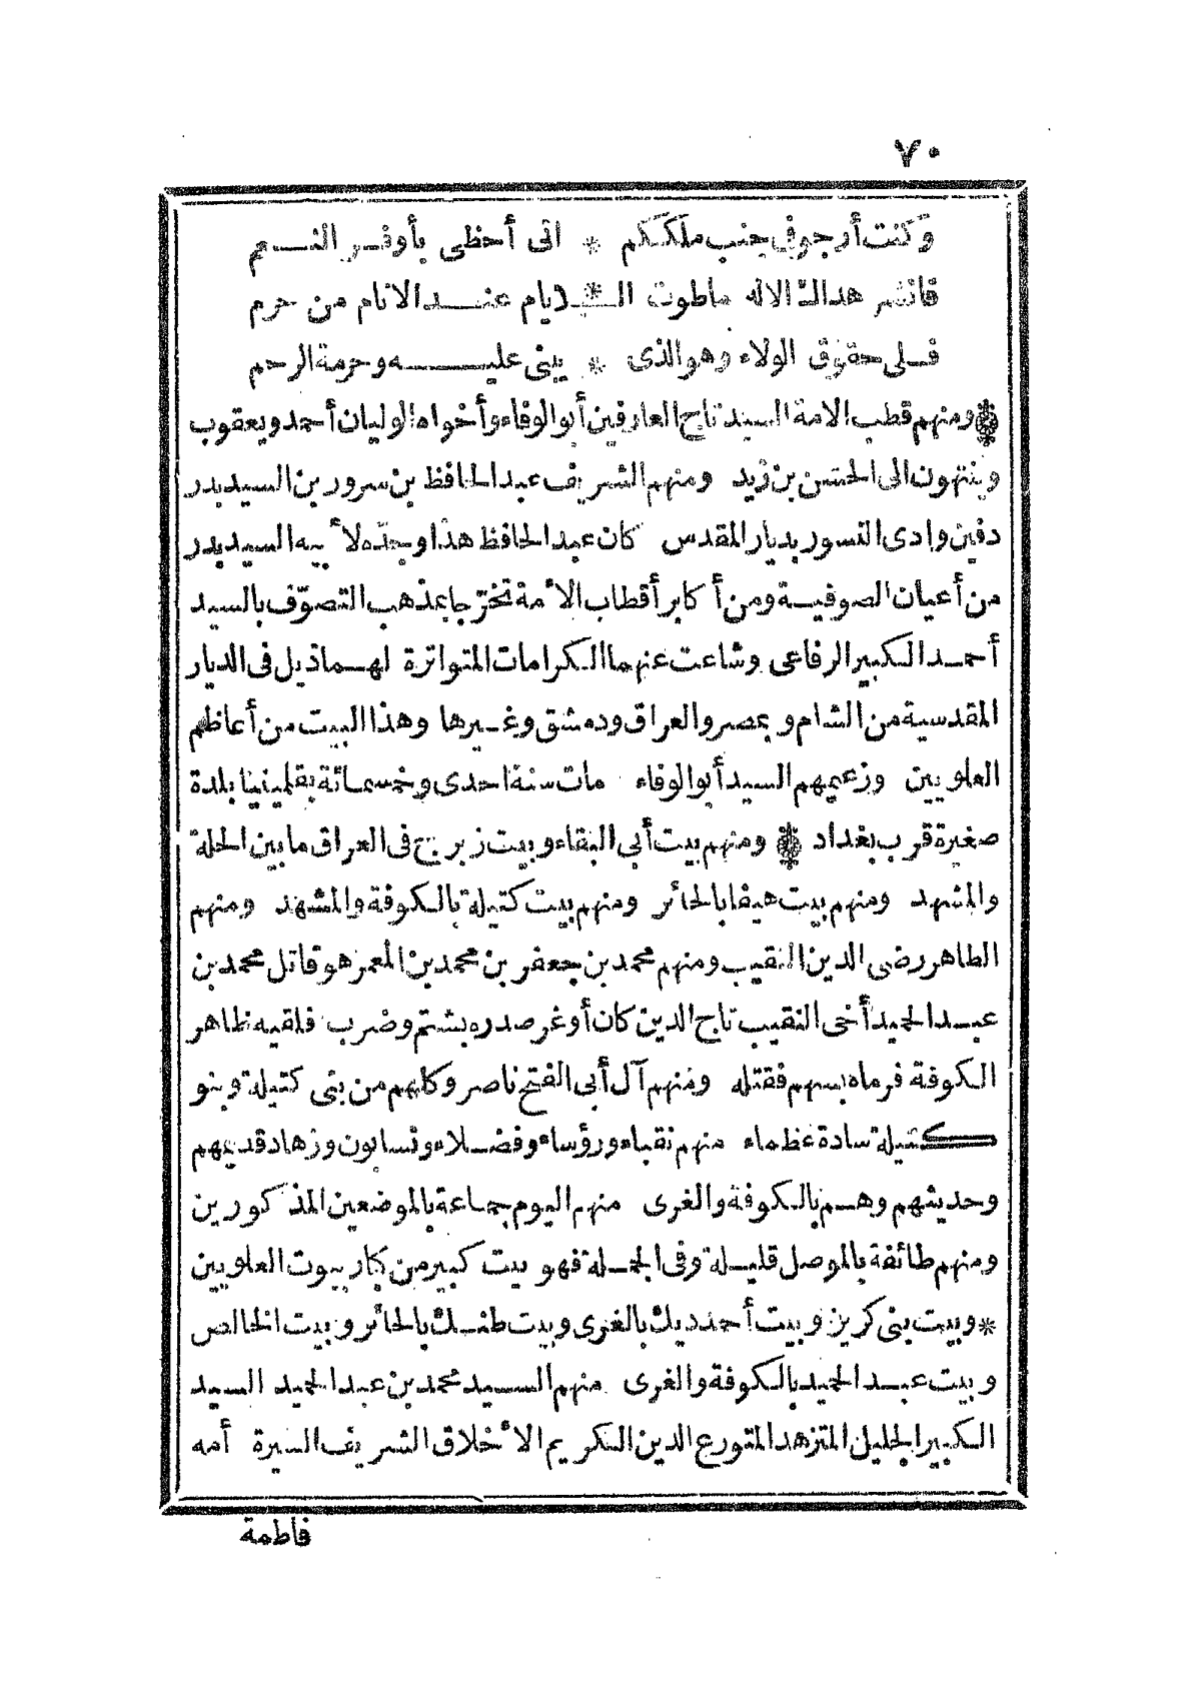 ٧٠
وكنت أرجو فى جنب ملككم * انى أحظى بأوفر النعم
فانشر هداك الاله ماطوت الـ * ايام عند الانام من حرم
فلى حقوق الولاء وهو الذى * يبنى عليه وحرمة الرحم
* ومنهم قطب الامة السيد تاج العارفين أبو الوفاء وأخواه الوليان أحمد ويعقوب
وينتهون الى الحسن بن زيد ومنهم الشريف عبد الحافظ بن سرور بن السيد بدر
دفين وادى النسور بديار المقدس كان عبد الحافظ هذا وجدّه لأبيه السيد بدر
من أعيان الصوفية ومن أكابر أقطاب الأمة تخرّجا بمذهب التصوّف بالسيد
أحمد الكبير الرفاعى وشاعت عنهما الكرامات المتواترة لهما ذيل فى الديار
المقدسية من الشام وبمصر والعراق ودمشق وغيرها وهذا البيت من أعاظم
العلويين وزعيمهم السيد أبو الوفاء مات سنة احدى وخمسمائة بقلمينيا بلدة
صغيرة قرب بغداد * ومنهم بيت أبى البقاء وبيت زبرج فى العراق ما بين الحلة
والمشهد ومنهم بيت هيفا بالحائر ومنهم بيت كتيلة بالكوفة والمشهد ومنهم
الطاهر رضى الدين النقيب ومنهم محمد بن جعفر بن محمد بن المعمر هو قاتل محمد بن
عبد الحميد أخى النقيب تاج الدين كان أوغر صدره بشتم وضرب فلقيه ظاهر
الكوفة فرماه بسهم فقتله ومنهم آل أبى الفتح ناصر وكلهم من بنى كتيلة وبنو
كتيلة سادة عظماء منهم نقباء ورؤساء وفضلاء ونسابون وزهاد قديمهم
وحديثهم وهم بالكوفة والغرى منهم اليوم جماعة بالموضعين المذكورين
ومنهم طائفة بالموصل قليلة وفى الجملة فهو بيت كبير من كبار بيوت العلويين
* وبيت بنى كريز وبيت أحمد ديك بالغرى وبيت طنك بالحائر وبيت الخالص
وبيت عبد الحميد بالكوفة والغرى منهم السيد محمد بن عبد الحميد السيد
الكبير الجليل المتزهد المتورع الدين الكريم الأخلاق الشريف السيرة أمه
فاطمة